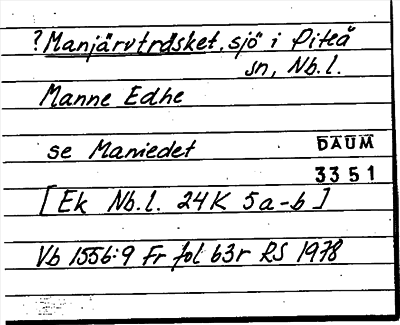 ? Manjärvträsket, sjö i Piteå
sn, Nb.l.
Manne Edhe
se Mannedet
DAUM
3351
[Ek Nb.l. 24K 5a-b]
Vb 1556:9 Fr fol 63r RS 1978